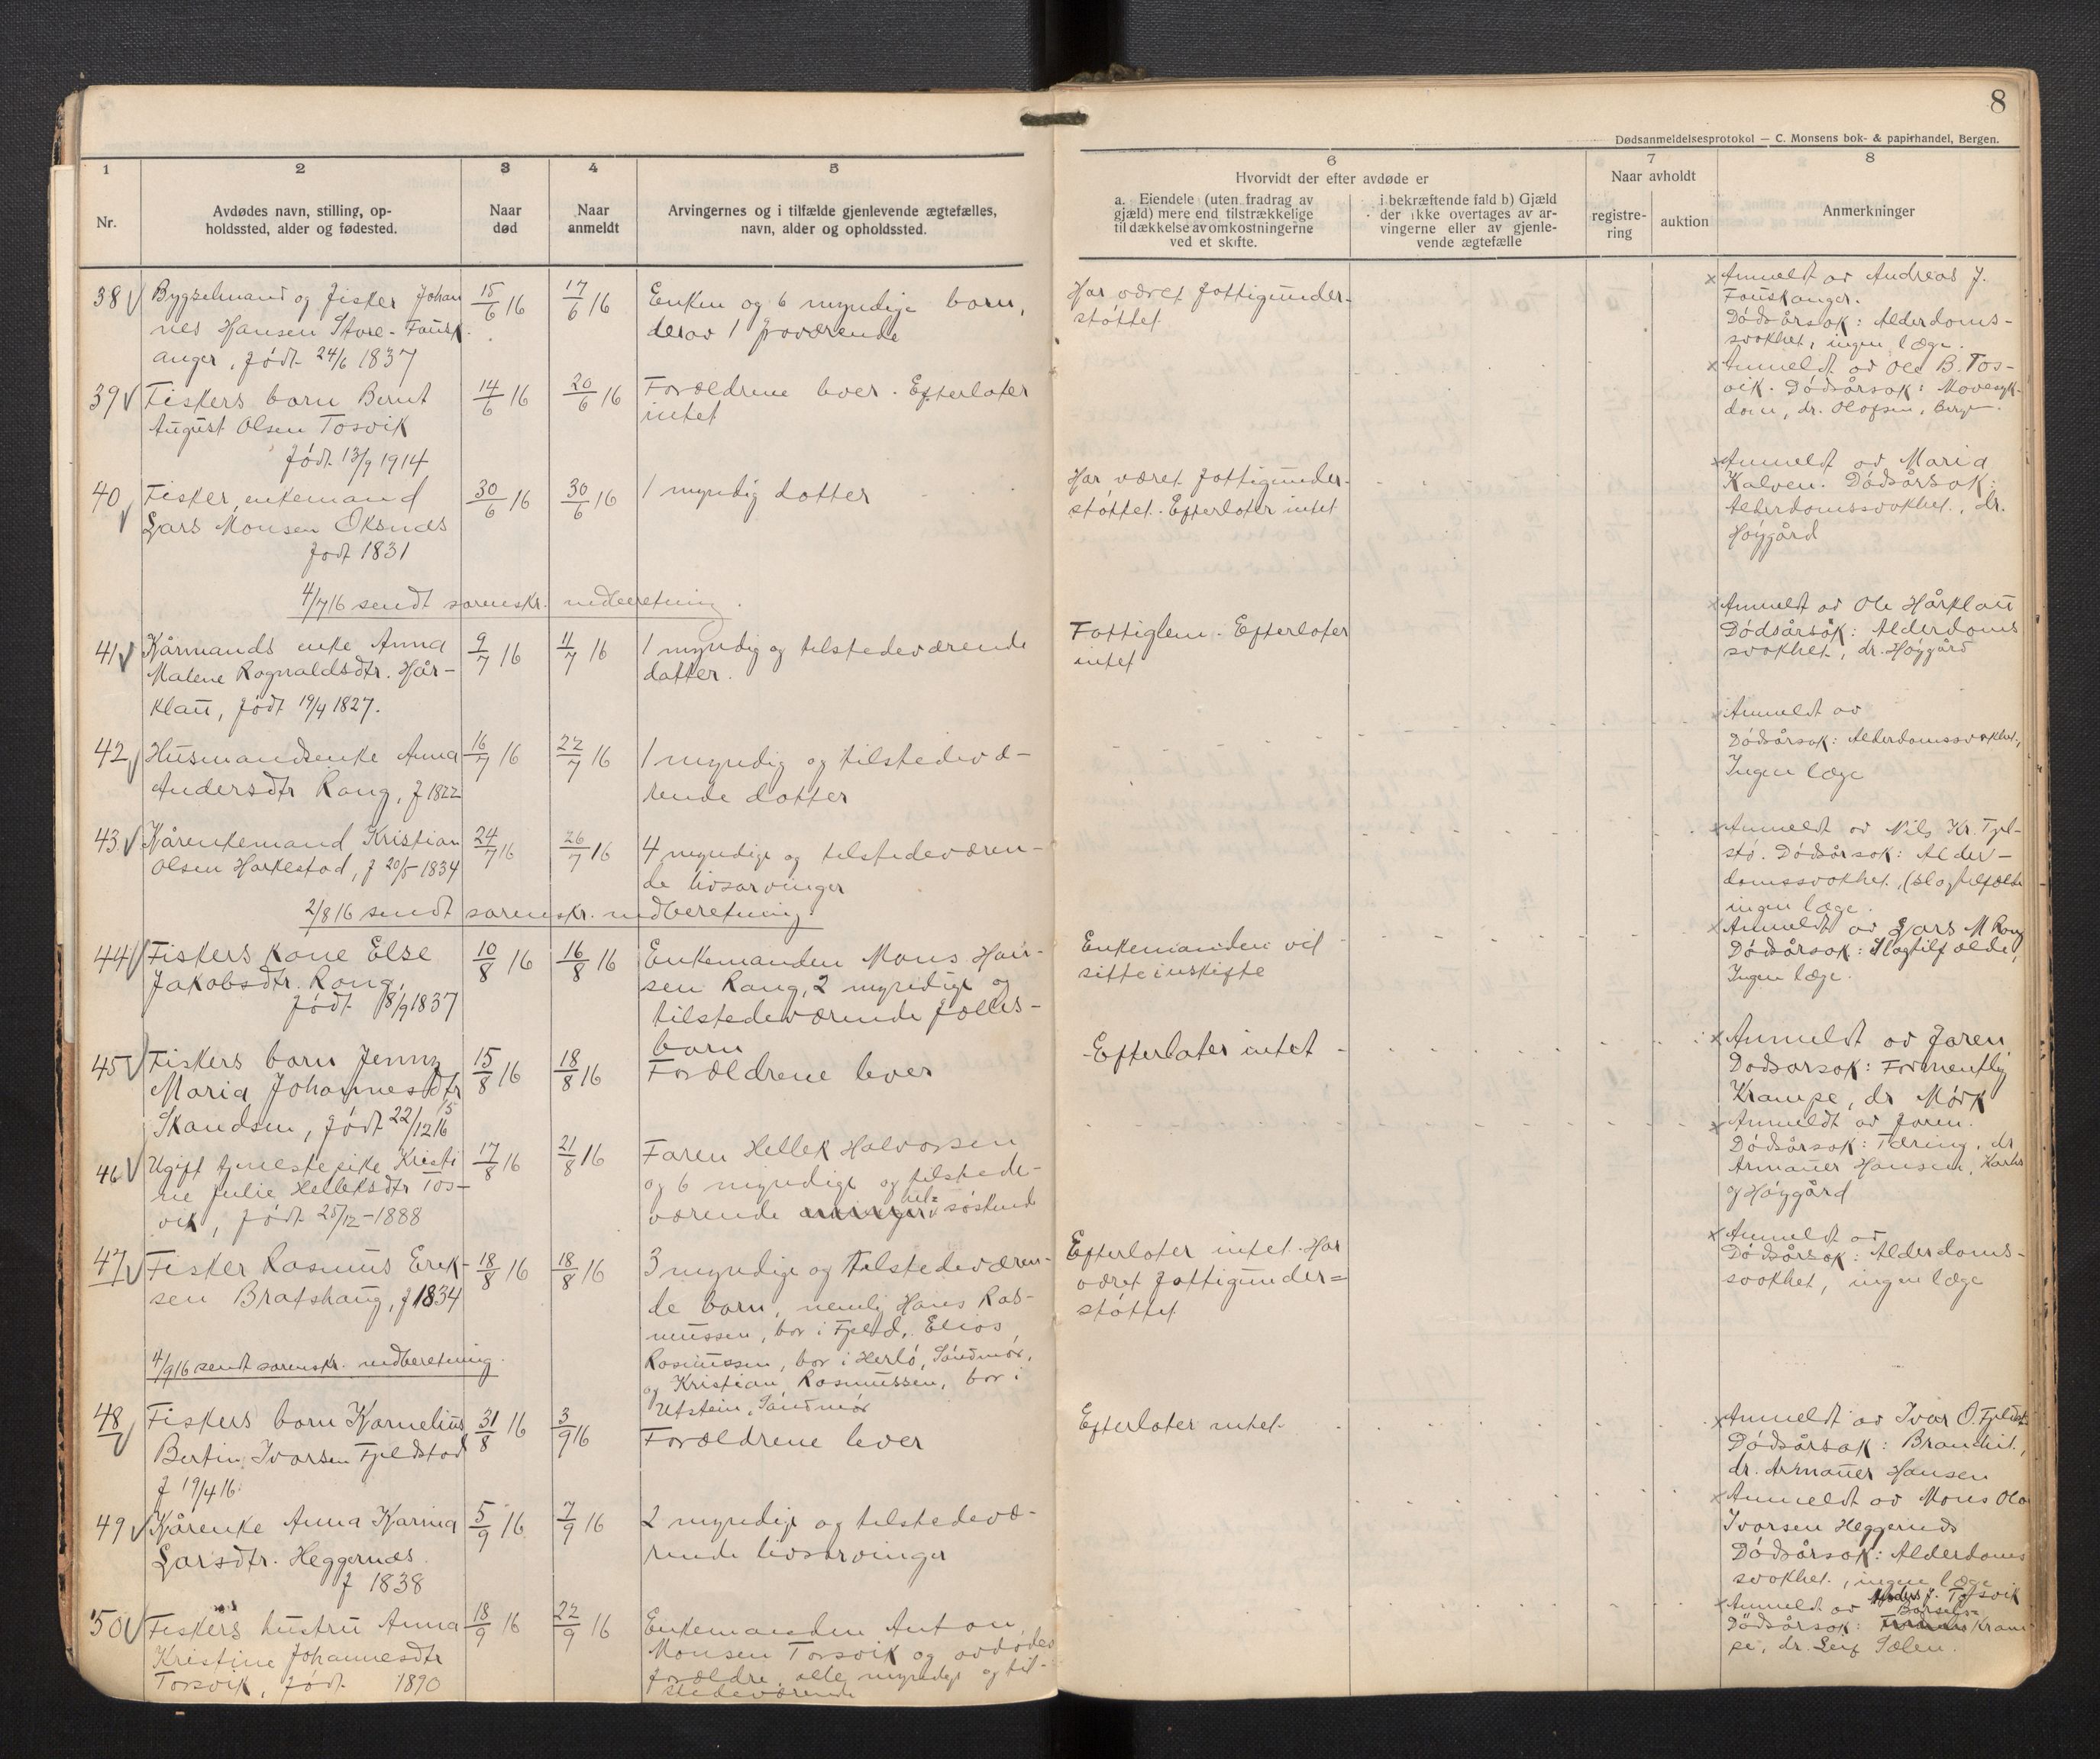 8
Dødsanmeldelsesprotokol — C. Monsens bok- & papirhandel, Bergen.
1
Nr.
2
Avdødes navn, stilling, op-
holdssted, alder og fødested.
3
Naar
død
4
Naar
anmeldt
5
Arvingernes og i tilfælde gjenlevende ægtefælles,
navn, alder og opholdssted.
6
Hvorvidt der efter avdøde er
a. Eiendele (uten fradrag av
gjæld) mere end tilstrækkelige
til dækkelse av omkostningerne
ved et skifte.
i bekræftende fald b) Gjæld
der ikke overtages av ar-
vingerne eller av gjenle-
vende ægtefælle
7
Naar avholdt
registre-
ring
auktion
8
Anmerkninger
38
Bygselmand og fisker Johan
nes Hansen Store-Fausk
anger, født 24/6 1837
15/6 16
17/6 16
Enken og 6 myndige barn,
derav 1 fraværende
Har været fattigunder-
støttet
Anmeldt av Andreas J.
Fauskanger.
Dødsårsak: Alderdoms-
svakhet, ingen læge.
39
Fiskers barn Bernt
August Olsen Tosvik
født 13/9 1914
14/6 16
20/6 16
Forældrene lever. Efterlater
intet
Anmeldt av Ole B. Tos-
vik. Dødsårsak: Mavesyk-
dom, dr. Olafsen, Berg
40
Fisker, enkemand
Lars Monsen Oksnes
født 1831
30/6 16
30/6 16
1 myndig datter
Har været fattigunder-
støttet. Efterlater intet
Anmeldt av Maria
Kalven. Dødsårsak:
Alderdomssvakhet, dr.
Høygård
4/7 16 sendt sorenskr. indberetning.
41
Kårmands enke Anna
Malene Rognaldsdtr. Hår-
klau, født 19/4 1827.
9/7 16
11/7 16
1 myndig og tilstedeværende
datter.
Fattiglem. Efterlater
intet
Anmeldt av Ole Hårklau
Dødsårsak: Alderdoms
svakhet, dr. Høygård
42
Husmandsenke Anna
Andersdtr Rong, f 1822
16/7 16
22/7 16
1 myndig og tilstedevæ-
rende datter
Anmeldt av
Dødsårsak: Alderdomssvakhet,
Ingen læge
43
Kårenkemand Kristian
Olsen Harkestad, f 20/5 1834
24/7 16
26/7 16
4 myndige og tilstedeværen-
de livsarvinger
Anmeldt av Nils Kr. Fjel-
stø. Dødsårsak: Alder-
domssvakhet, (slagtilfælde
ingen læge.
2/8 16 sendt sorenskr. indberetning.
44
Fiskers kone Else
Jakobsdtr. Rong,
født 18/9 1837
10/8 16
16/8 16
Enkemanden Mons Han-
sen Rong, 2 myndige og
tilstedeværende fælles-
barn
Enkemanden vil
sitte i uskifte
Anmeldt av Lars M Rong
Dødsårsak: Slagtilfælde,
Ingen læge.
45
Fiskers barn Jenny
Maria Johannesdtr
Skandsen, født 22/12 15
15/8 16
18/8 16
Forældrene lever
Efterlater intet
Anmeldt av faren
Dødsårsak: Formentlig
Krampe, dr Mørk
46
Ugift tjenestepike Kristi
ne Julie Helleksdtr Tos-
vik, født 25/12-1888
17/8 16
21/8 16
Faren Hellek Halvorsen
og 6 myndige og tilstede-
værende hel- søskende
Anmeldt av faren.
Dødsårsak: Tæring, dr
Armauer Hansen,
og Høygård
47
Fisker Rasmus Erik-
sen Bratshaug, f 1834
18/8 16
18/8 16
3 myndige og tilstedeværen-
de barn, nemlig Hans Ras-
mussen, bor i Fjeld, Elias
Rasmussen, bor i Herlø, Søndmør,
og Kristian Rasmussen, bor i
Utstein, Søndmør
Efterlater intet. Har
været fattigunder=
støttet
Anmeldt av
Dødsårsak: Alderdoms-
svakhet, ingen læge
4/9 16 sendt sorenskr. indberetning.
48
Fiskers barn Kornelius
Bertin Ivarsen Fjeldstad
f 19/4 16.
31/8 16
3/9 16
Forældrene lever
Efterlater intet.
Anmeldt av Ivar O. Fjeldst.
Dødsårsak: Bronchit,
dr. Armauer Hansen
49
Kårenke Anna Karina
Larsdtr. Heggernes
f 1838
5/9 16
7/9 16
2 myndige og tilstedevæ-
rende livsarvinger
Anmeldt av Mons Ola
Ivarsen Heggernes
Dødsårsak: Alderdoms
svakhet, ingen læge
50
Fiskers hustru Anna
Kristine Johannesdtr
Torsvik, født 1890
18/9 16
22/9 16
Enkemanden Anton
Monsen Torsvik og avdødes
forældre, alle myndige og til-
stedeværende
Anmeldt av Anders J. Torsvik
Dødsårsak: Barsels- Kram
pe, dr. Leif Sælen.